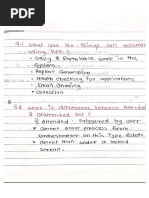 Q.1 What are the things can automate
using RPA ?
• Daily & Repeatable work in the
System.
• Report Generation
• Health Checking for applications
• Email Sharing
• Collection
Q.2 What is difference between Attended
& Unattended bot ?
① Attended : Triggered by user
• Cannot start process from
Orchestrator on this type Robots
• Cannot run under a locked
screen.